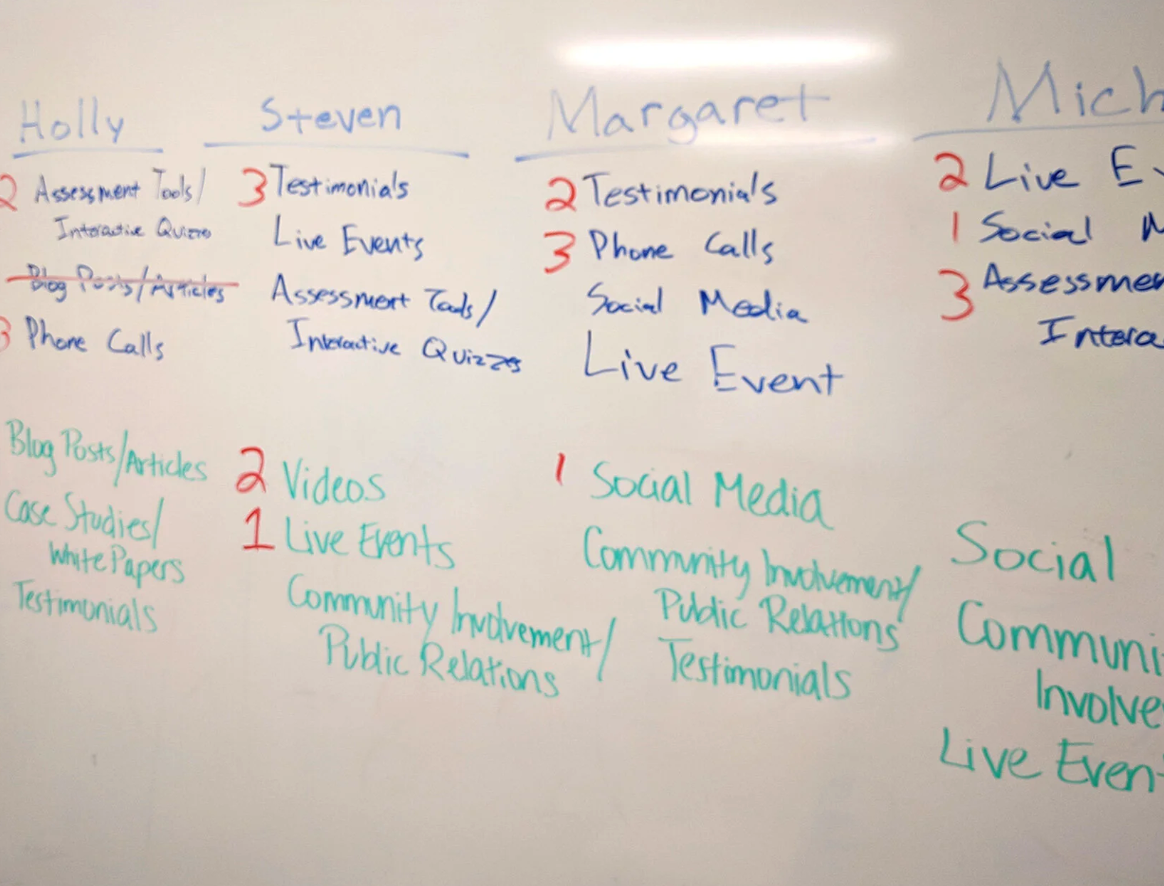 Holly
2 Assessment Tools/
Interactive Quizzes
Blog Posts/Articles
3 Phone Calls
Blog Posts/Articles
Case Studies/
White Papers
Testimonials
Steven
3 Testimonials
Live Events
Assessment Tools/
Interactive Quizzes
2 Videos
1 Live Events
Community Involvement/
Public Relations
Margaret
2 Testimonials
3 Phone Calls
Social Media
Live Event
1 Social Media
Community Involvement/
Public Relations
Testimonials
Mich
2 Live Ev
1 Social M
3 Assessmen
Intera
Social
Communi
Involve
Live Even